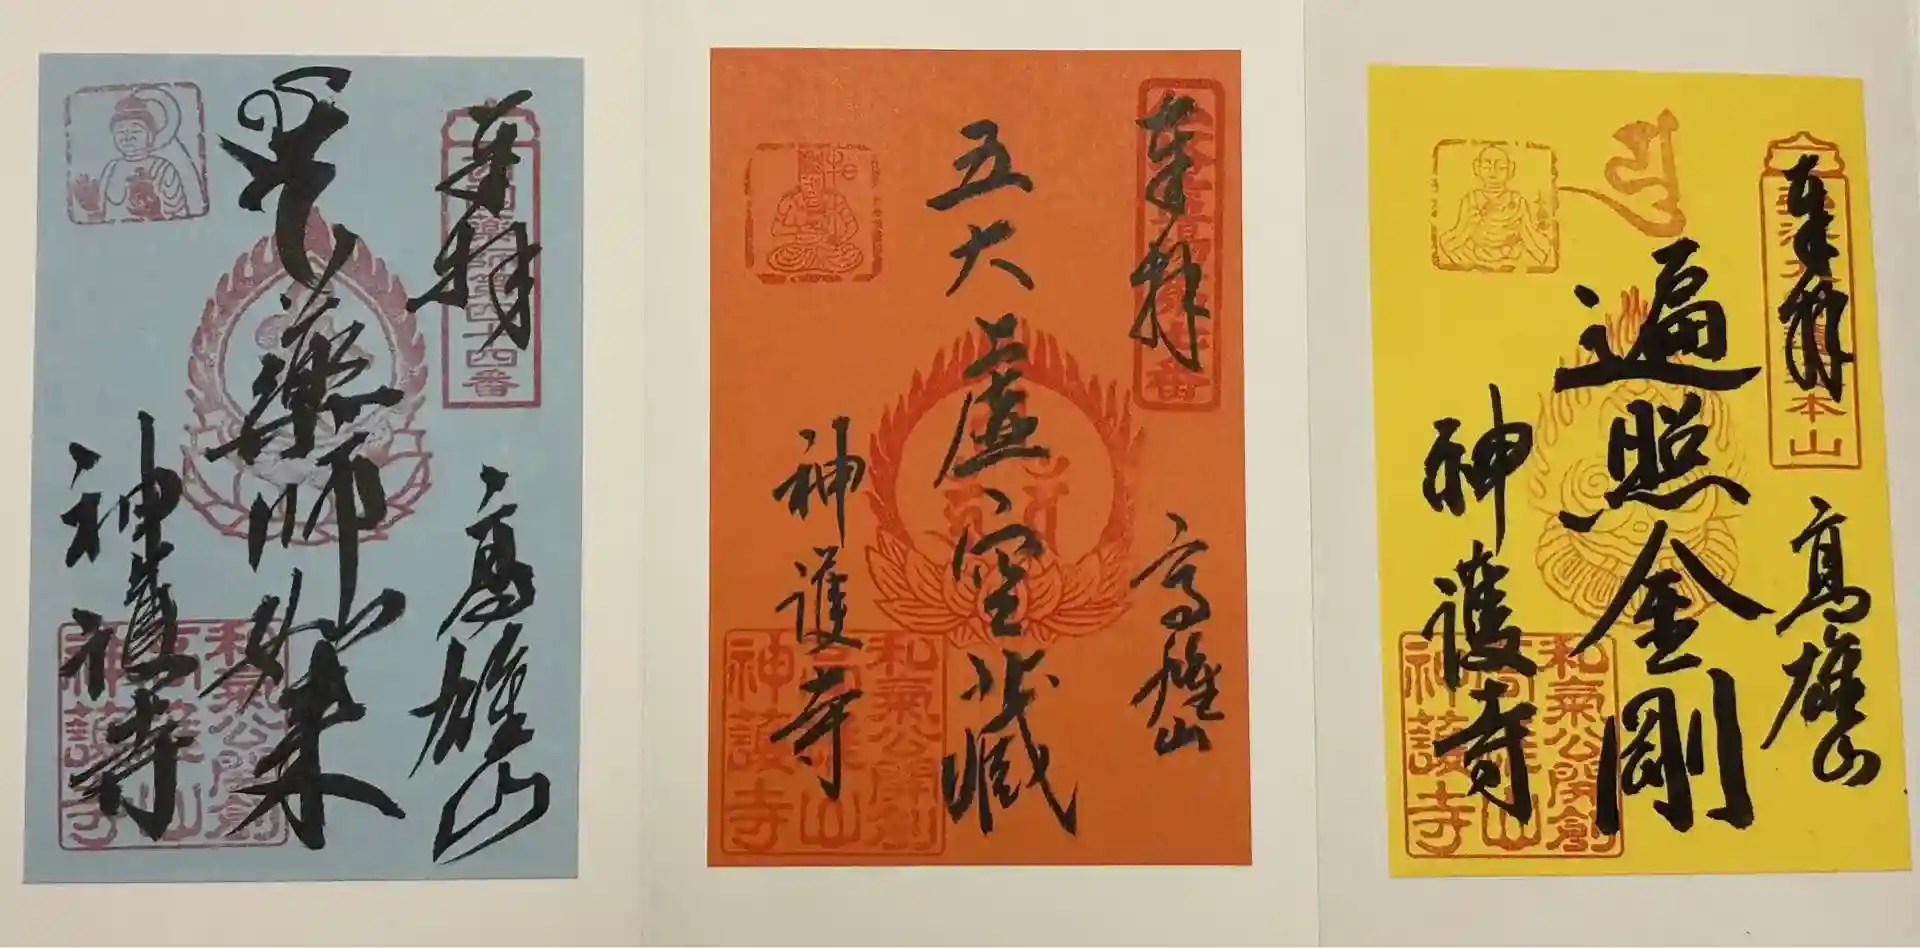 奉拝
第四十四番
高雄山
薬師如来
神護寺
和氣公開創
高雄山
神護寺
奉拝
高雄山
五大虚空蔵
神護寺
和氣公開創
高雄山
神護寺
奉拝
本山
高雄山
遍照金剛
神護寺
和氣公開創
高雄山
神護寺